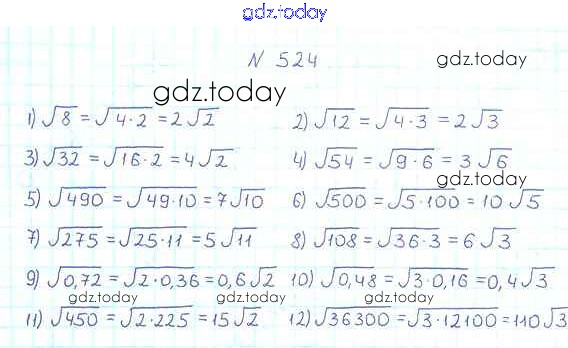 gdz.today
N 524
gdz.today
gdz.today
1) √8 = √4·2 = 2√2 2) √12 = √4·3 = 2√3
3) √32 = √16·2 = 4√2 4) √54 = √9·6 = 3√6
gdz.today
5) √490 = √49·10 = 7√10 6) √500 = √5·100 = 10√5
7) √275 = √25·11 = 5√11 8) √108 = √36·3 = 6√3
9) √0,72 = √2·0,36 = 0,6√2 10) √0,48 = √3·0,16 = 0,4√3
gdz.today gdz.today
11) √450 = √2·225 = 15√2 12) √36300 = √3·12100 = 110√3